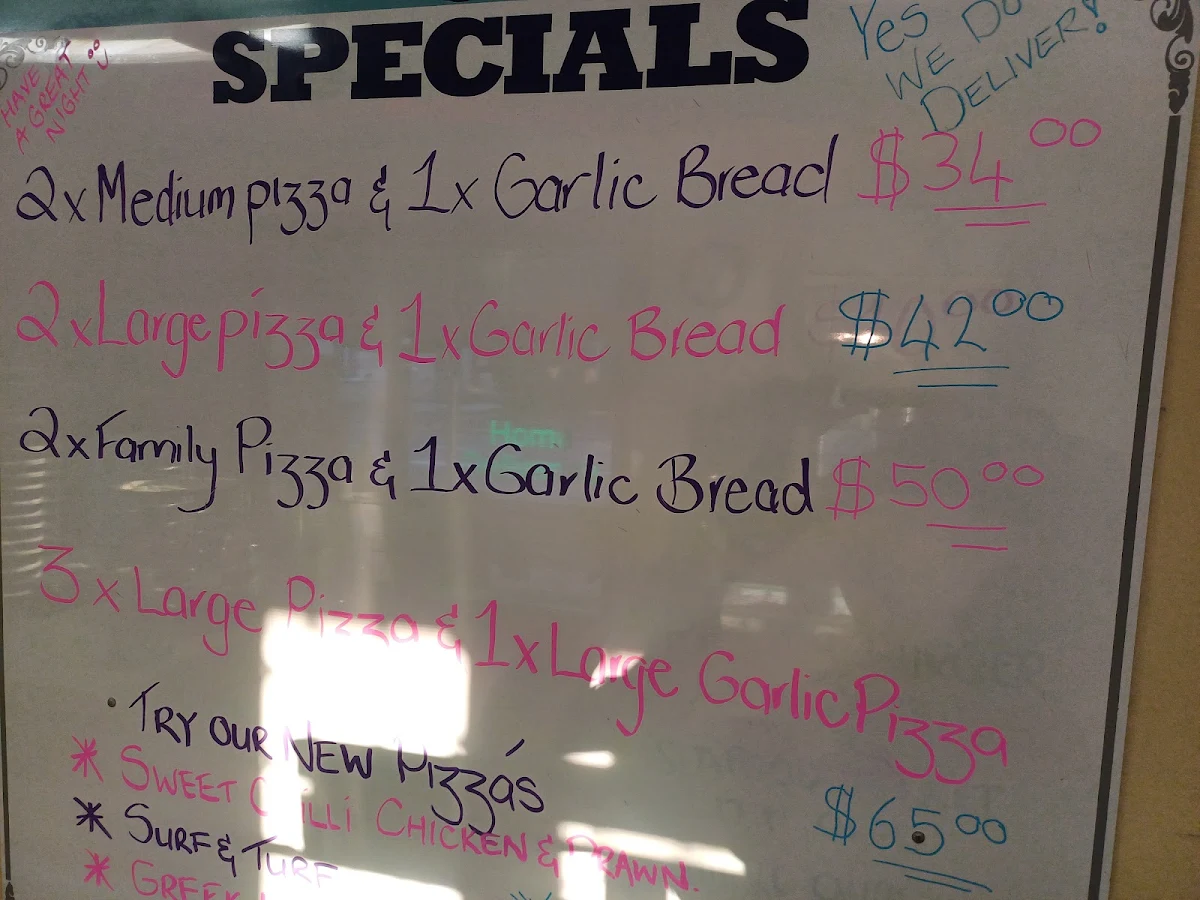 SPECIALS
Yes
WE DO
DELIVER!
HAVE
A GREAT
NIGHT
2x Medium pizza & 1x Garlic Bread $34.00
2x Large pizza & 1x Garlic Bread $42.00
2x Family Pizza & 1x Garlic Bread $50.00
3x Large Pizza & 1x Large Garlic Pizza
$65.00
TRY OUR NEW PIZZA'S
* SWEET CHILLI CHICKEN & PRAWN.
* SURF & TURF
* GREEK